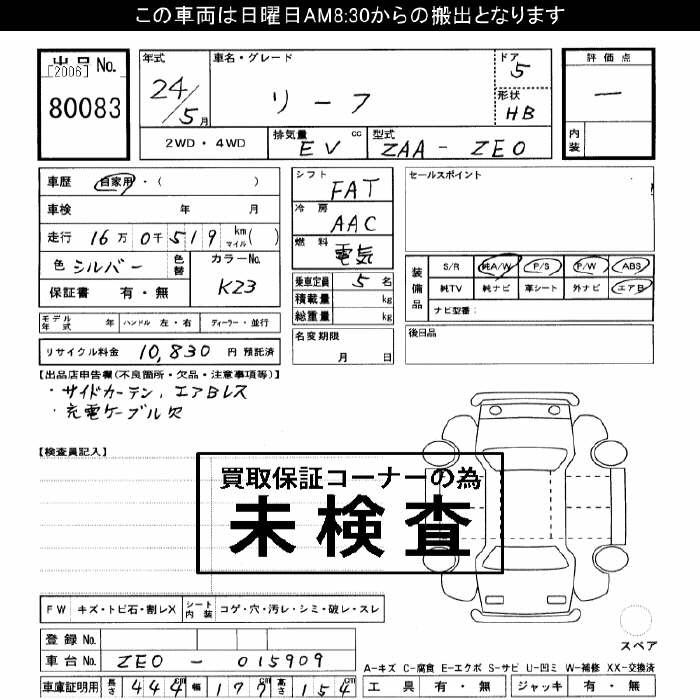 この車両は日曜日AM8:30からの搬出となります
出品No.
[2006]
80083
年式
24/5月
車名・グレード
リーフ
ドア
5
形状
HB
評価点
―
内装
2WD・4WD
排気量 cc
EV
型式
ZAA-ZE0
車歴 自家用・( )
車検 年 月
走行 16万0千519km マイル( )
色 シルバー
色替
カラーNo.
K23
保証書 有・無
モデル年式 年
ハンドル 左・右
ディーラー・並行
リサイクル料金 10,830 円 預託済
シフト
FAT
冷房
AAC
燃料
電気
乗車定員 5名
積載量 kg
総重量 kg
名変期限
月 日
セールスポイント
装備品
S/R 純A/W P/S P/W ABS
純TV 純ナビ 革シート 外ナビ エアB
ナビ型番:
後日品
【出品店申告欄(不良箇所・欠品・注意事項等)】
・サイドカーテン,エアBレス
・充電ケーブル欠
【検査員記入】
買取保証コーナーの為
未検査
FW キズ・トビ石・割レX
シート内装 コゲ・穴・汚レ・シミ・破レ・スレ
登録No.
車台No. ZE0-015909
車庫証明用 長さ 444cm 幅 177cm 高さ 154cm
スペア
A-キズ C-腐食 E-エクボ S-サビ U-凹ミ W-補修 XX-交換済
工具 有・無 ジャッキ 有・無